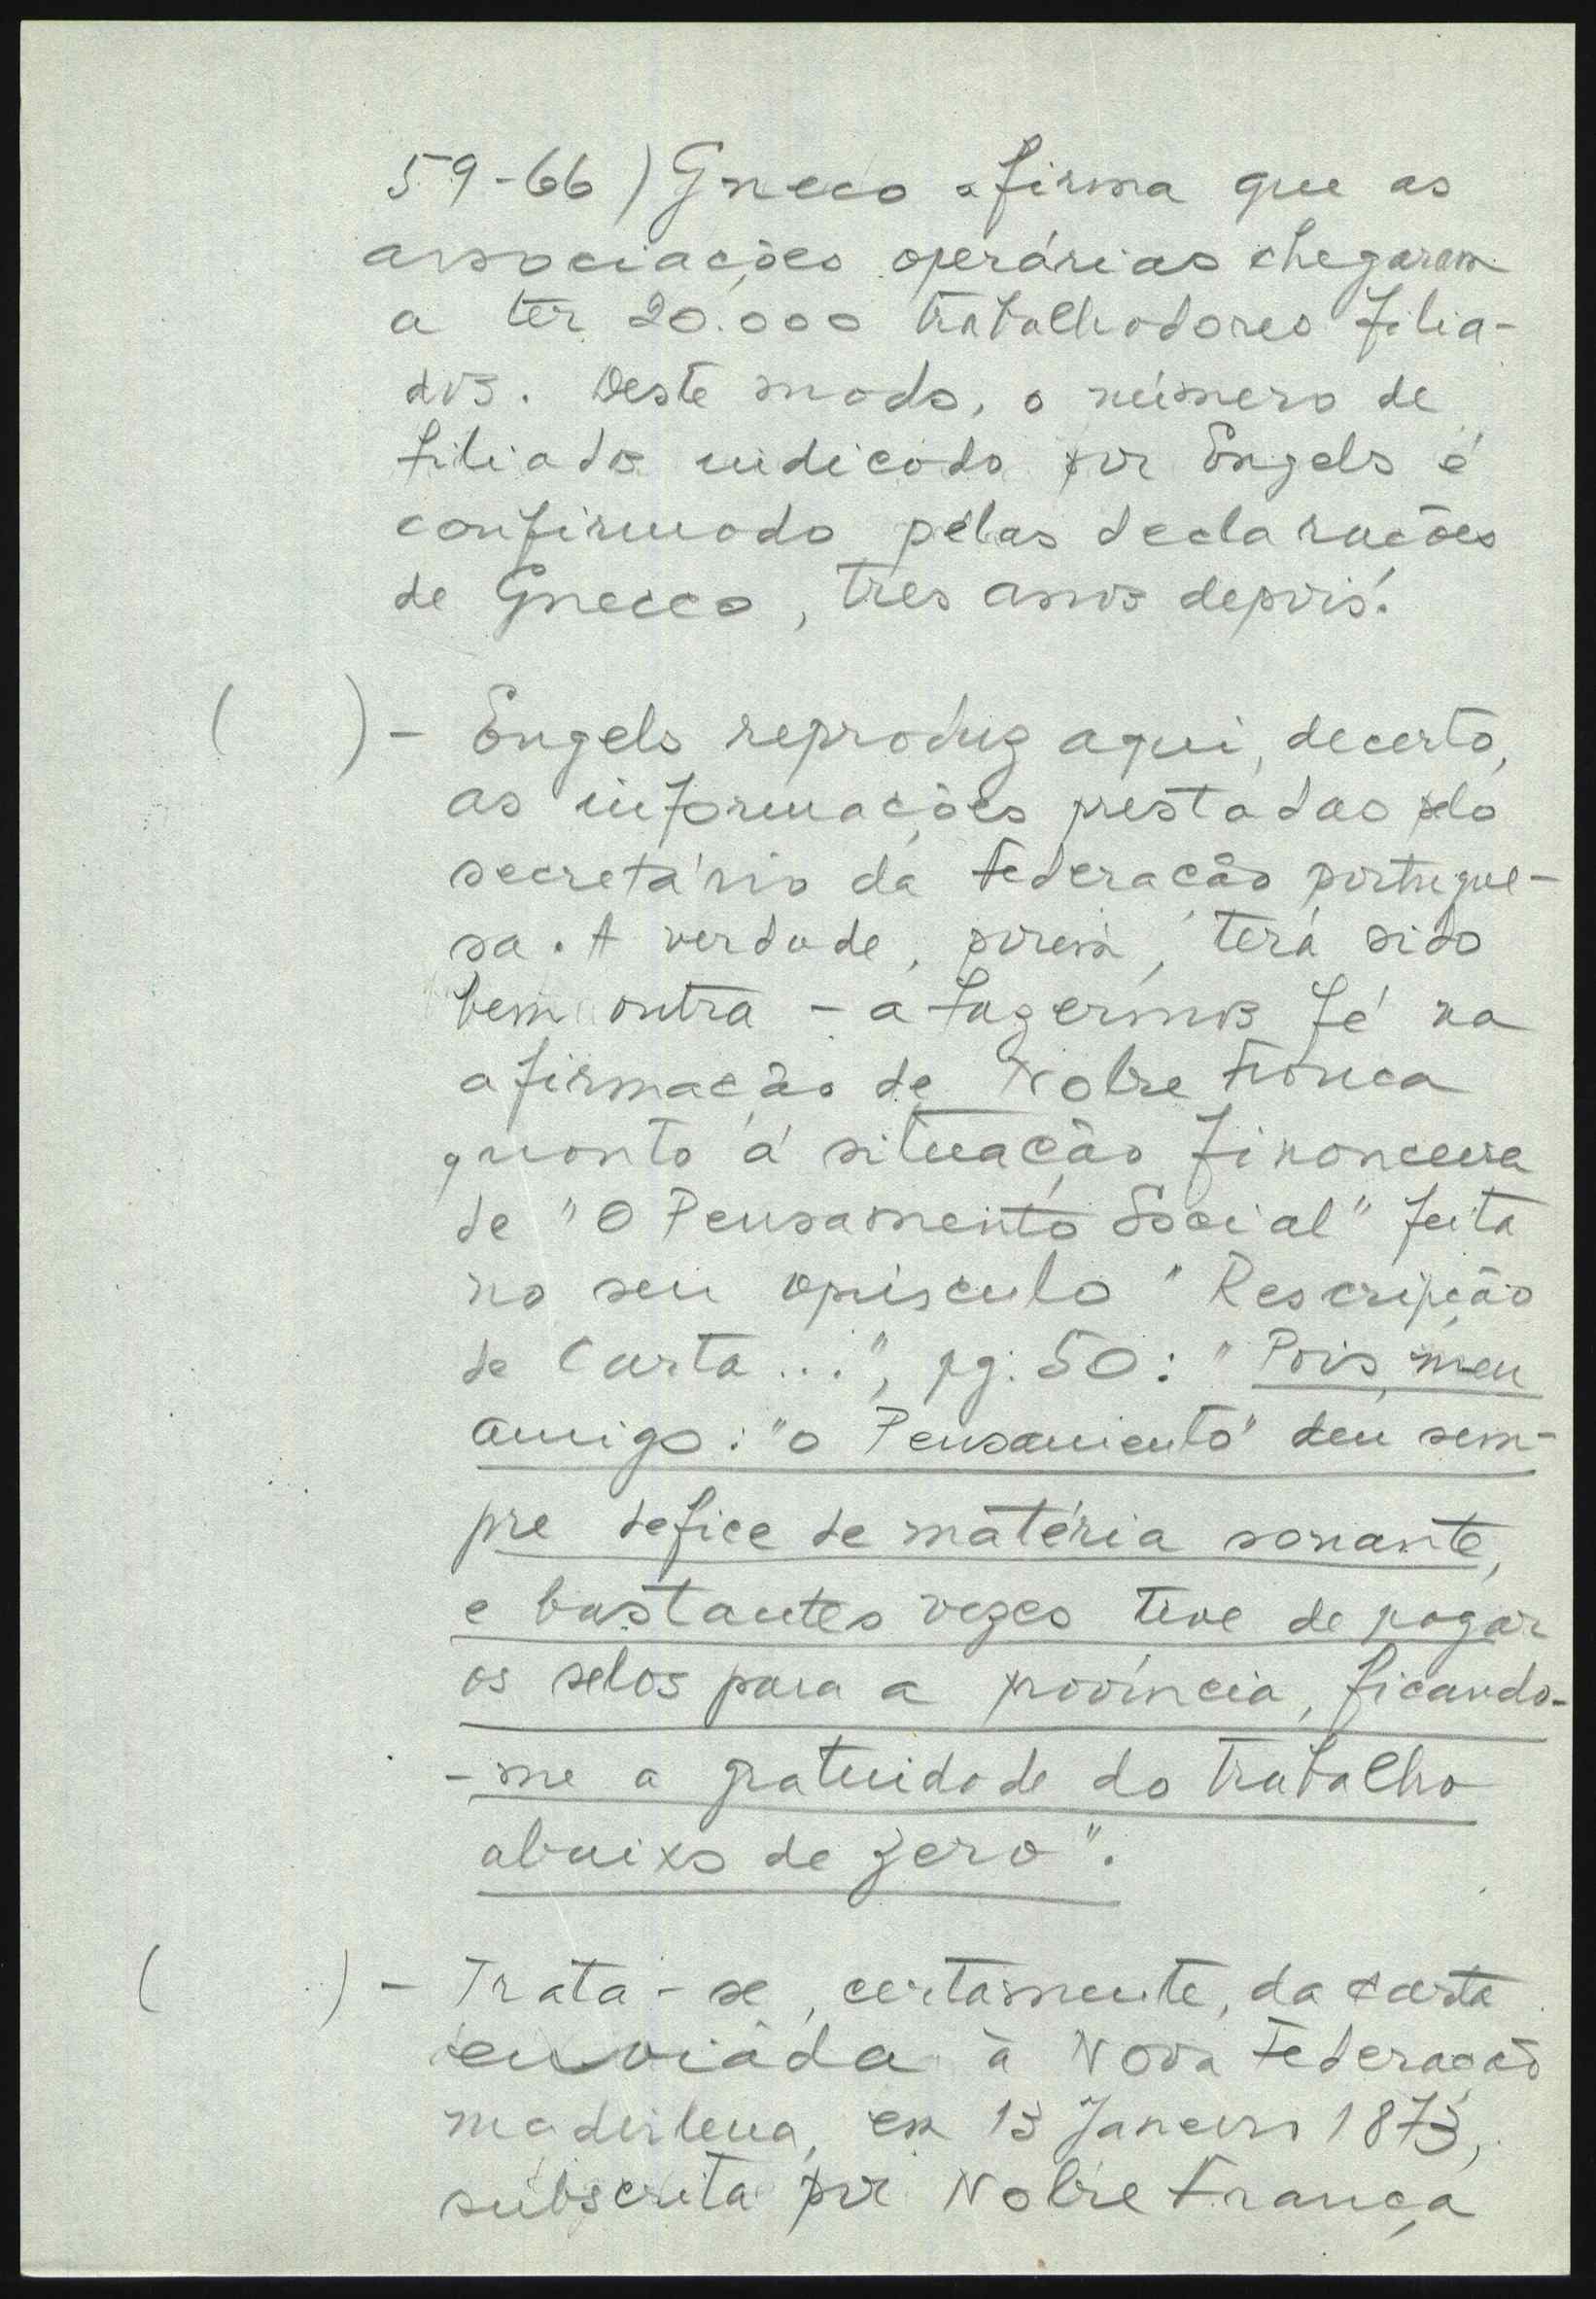 59-66) Gneco afirma que as
associações operárias chegaram
a ter 20.000 trabalhadores filia-
dos. Deste modo, o número de
filiados indicado por Engels é
confirmado pelas declarações
de Gnecco, tres anos depois.
( ) - Engels reproduz aqui, decerto,
as informações prestadas pelo
secretário da Federação portugue-
sa. A verdade, porem, terá sido
bem outra - a fazermos fé na
afirmação de Nobre França
quanto á situação financeira
de "O Pensamento Social" feita
no seu opúsculo "Rescripção
de Carta...", pg. 50: "Pois, meu
amigo: "o Pensamento" deu sem-
pre defice de matéria sonante,
e bastantes vezes tive de pagar
os selos para a província, ficando-
-me a gratuidade do trabalho
abaixo de zero".
( ) - Trata-se, certamente, da carta
enviada à Nova Federação
madrilena, em 13 Janeiro 1873,
subscrita por Nobre França